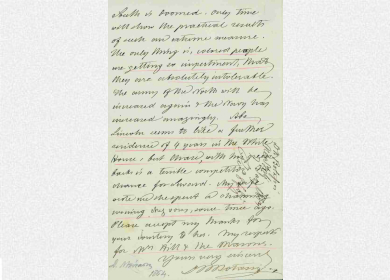 South is doomed. Only time
will show the practical results
of such an extreme measure.
The only thing is, colored people
are getting so impertinent, that
they are absolutely intolerable.
The army of the North will be
increased again & the Navy was
increased amazingly. Abe
Lincoln seems to like a further
residence of 4 years in the White
House, but with his
back is a terrible competitor
chance for Seward. My wife
wrote me she spent a charming
evening some time ago.
Please accept my thanks for
your courtesy to her. My regards
for Mrs. & the
Yours very sincerely
1864.